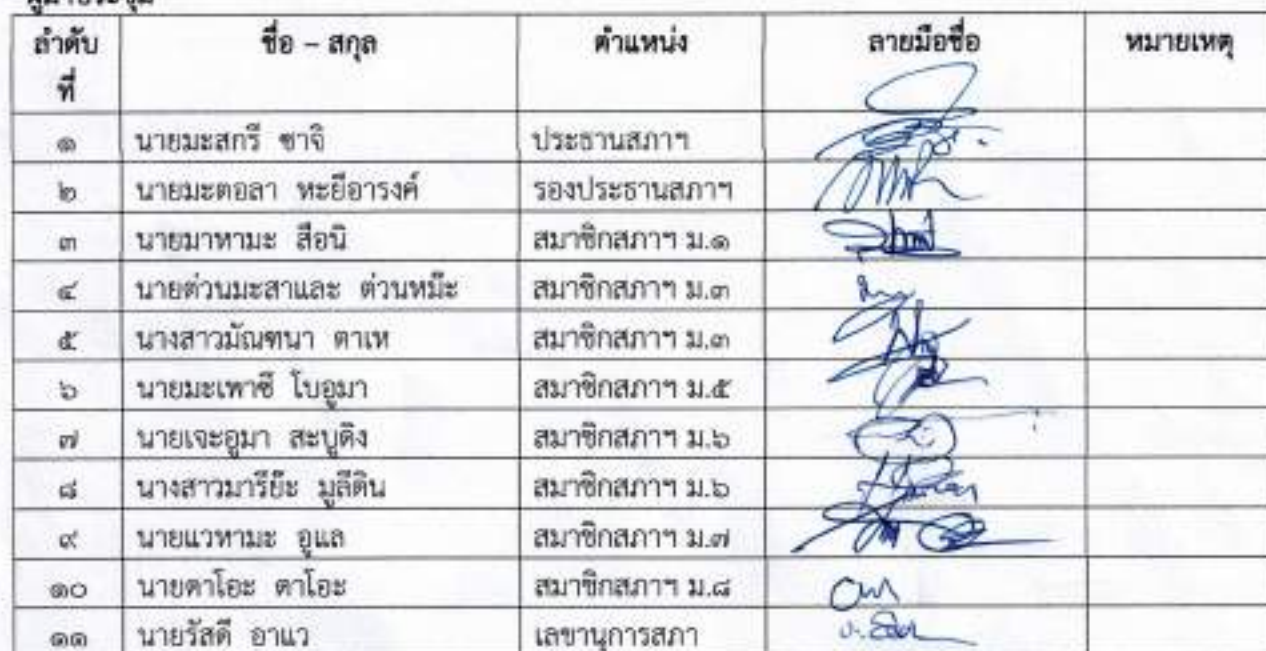 ผู้มาประชุม
ลำดับ ชื่อ – สกุล ตำแหน่ง ลายมือชื่อ หมายเหตุ
ที่
๑ นายมะสกรี ซาจิ ประธานสภาฯ
๒ นายมะตอลา หะยีอารงค์ รองประธานสภาฯ
๓ นายมาหามะ สือนิ สมาชิกสภาฯ ม.๑
๔ นายต่วนมะสาและ ต่วนหม๊ะ สมาชิกสภาฯ ม.๓
๕ นางสาวมัณฑนา ตาเห สมาชิกสภาฯ ม.๓
๖ นายมะเพาซี โบอูมา สมาชิกสภาฯ ม.๕
๗ นายเจะอูมา สะบูดิง สมาชิกสภาฯ ม.๖
๘ นางสาวมารีย๊ะ มูลีดิน สมาชิกสภาฯ ม.๖
๙ นายแวหามะ อูแล สมาชิกสภาฯ ม.๗
๑๐ นายตาโอะ ตาโอะ สมาชิกสภาฯ ม.๘
๑๑ นายรัสดี อาแว เลขานุการสภา